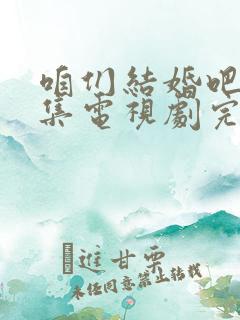 咱们結婚吧
集電視劇完
進甘栗
未任同意禁止转载